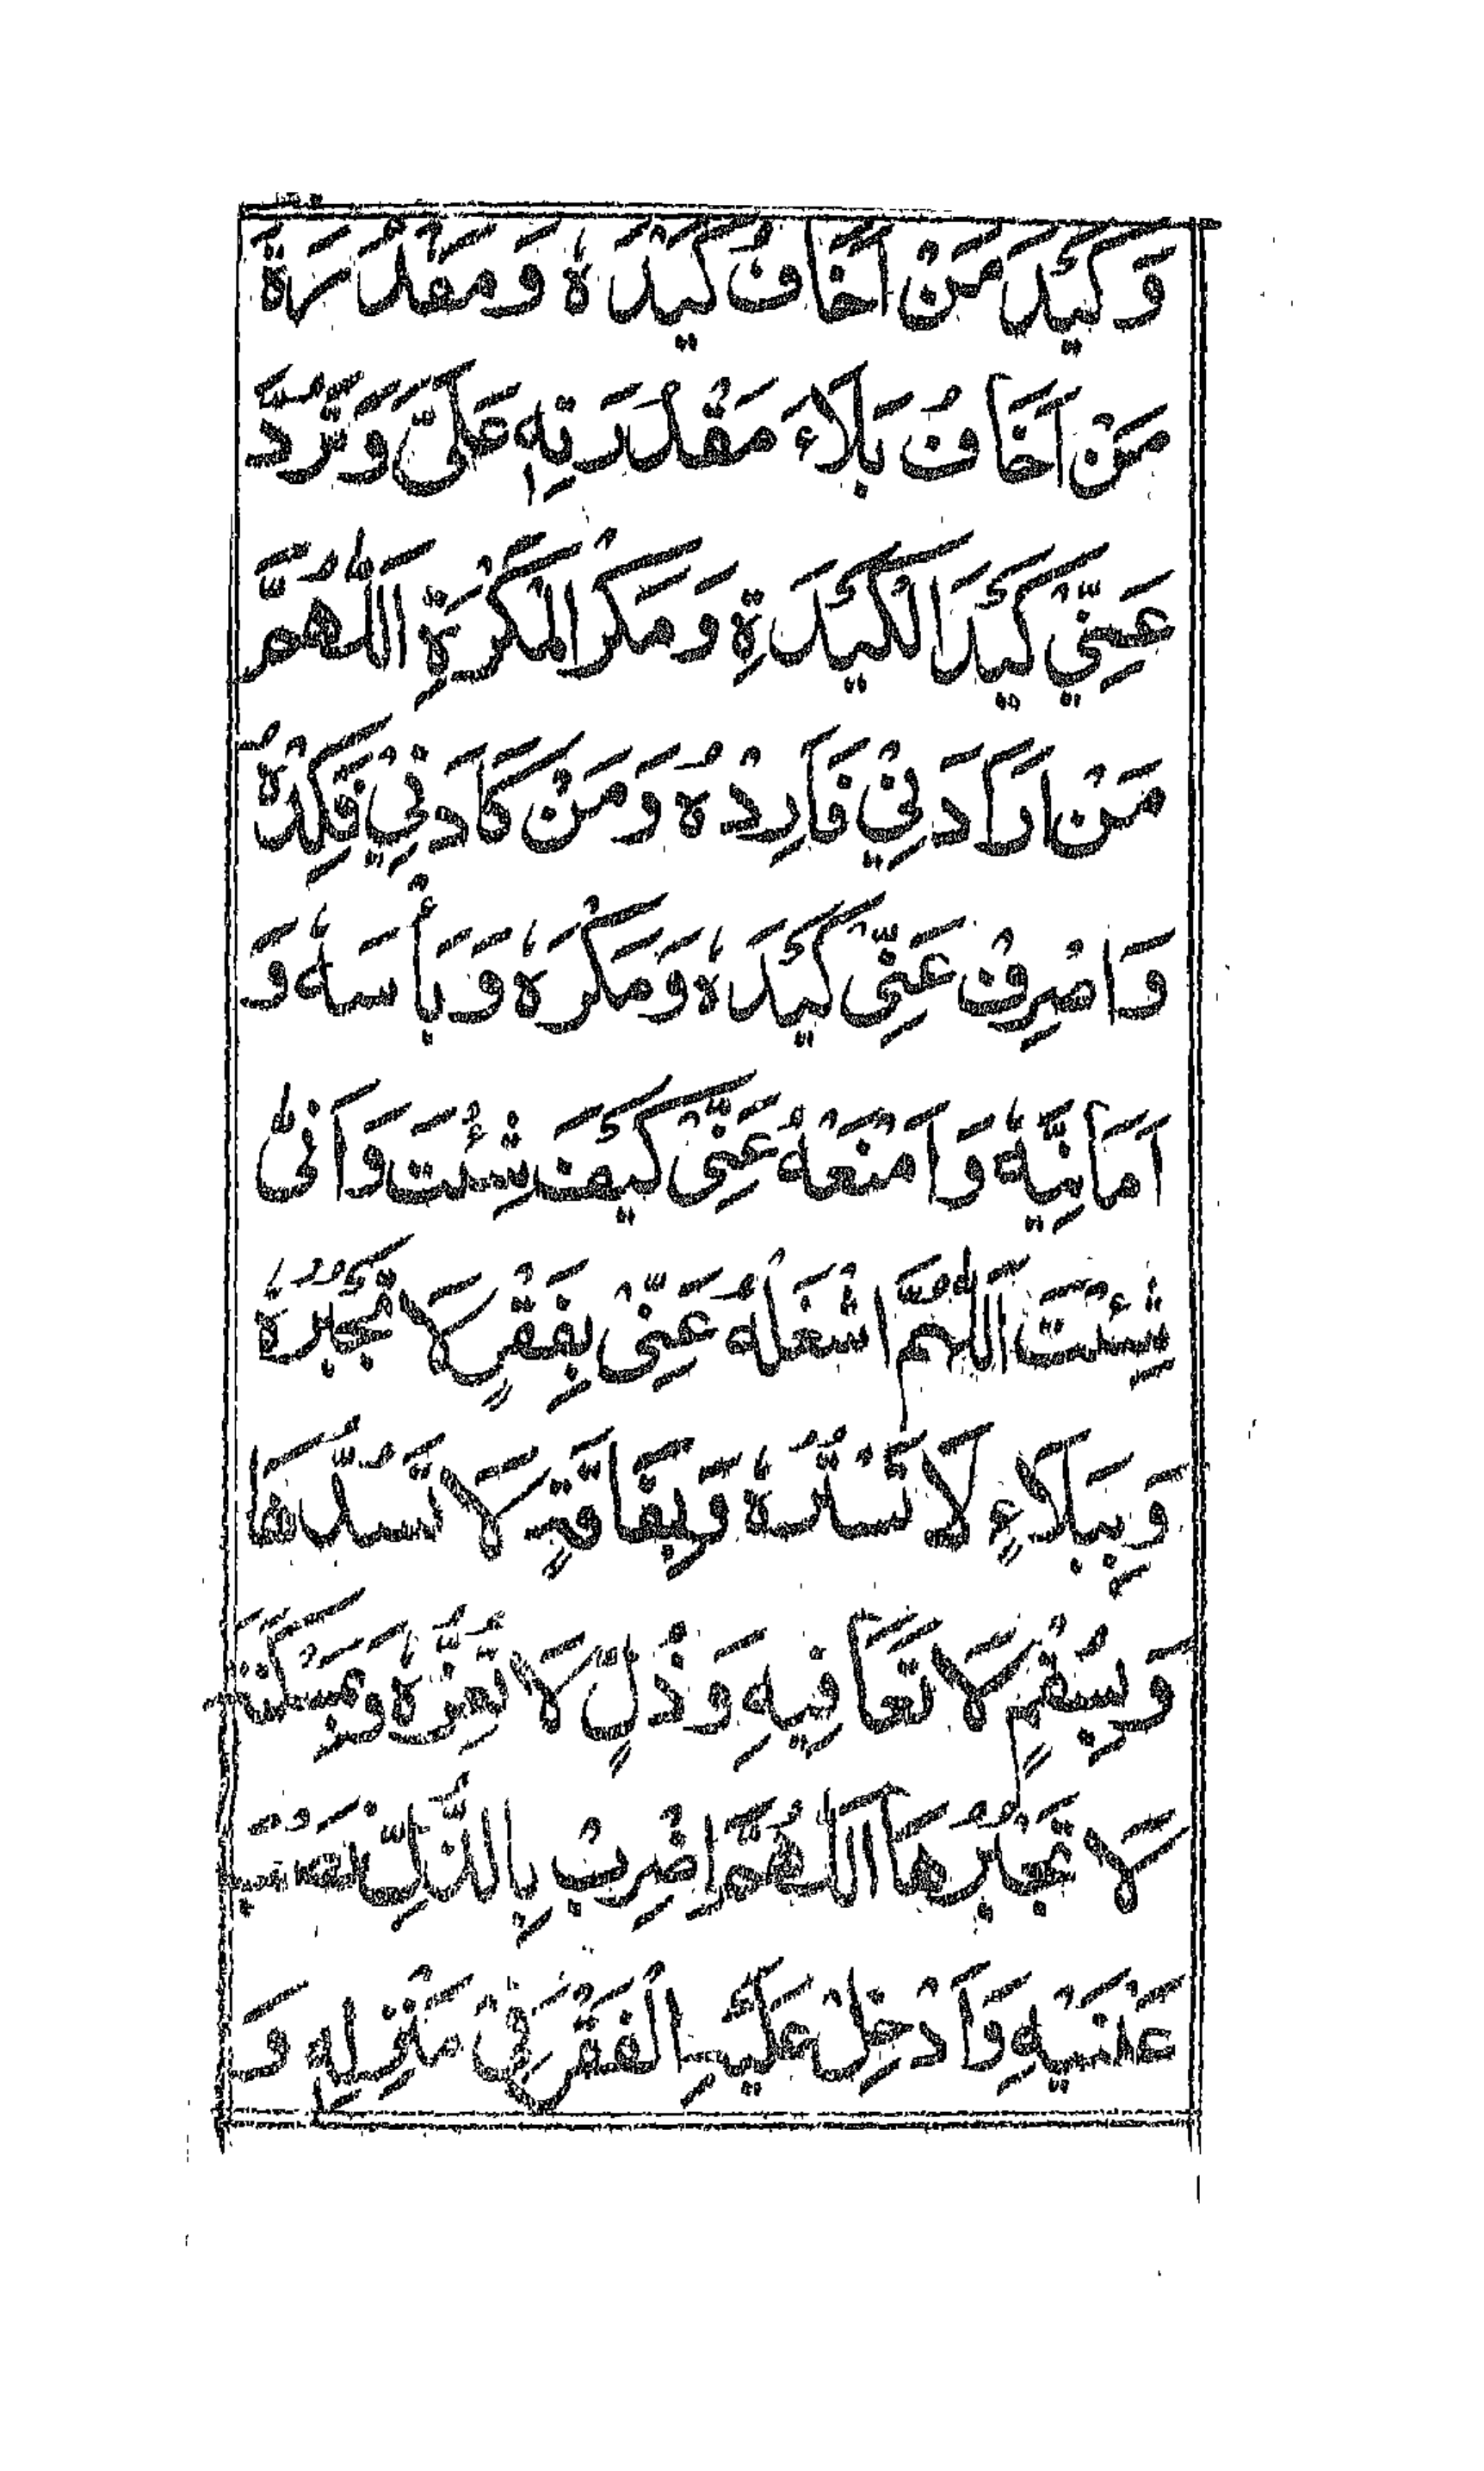 وَكَيْدَ مَنْ اَخَافُ كَيْدَهٗ وَمَقْدُرَةَ
مَنْ اَخَافُ بَلَاءَ مَقْدُرَتِهٖ عَلَيَّ وَتَرُدَّ
عَنِّيْ كَيْدَ الْكَيَدَةِ وَمَكْرَ الْمَكَرَةِ اَللّٰهُمَّ
مَنْ اَرَادَنِيْ فَاَرِدْهُ وَمَنْ كَادَنِيْ فَكِدْهُ
وَاصْرِفْ عَنِّيْ كَيْدَهٗ وَمَكْرَهٗ وَبَأْسَهٗ وَ
اَمَانِيَّهٗ وَامْنَعْهُ عَنِّيْ كَيْفَ شِئْتَ وَاَنّٰى
شِئْتَ اَللّٰهُمَّ اشْغَلْهُ عَنِّيْ بِفَقْرٍ لَا تَجْبُرُهٗ
وَبِبَلَاءٍ لَا تَسْتُرُهٗ وَبِفَاقَةٍ لَا تَسُدُّهَا
وَبِسُقْمٍ لَا تُعَافِيْهِ وَذُلٍّ لَا تُعِزُّهٗ وَبِمَسْكَنَةٍ
لَا تَجْبُرُهَا اَللّٰهُمَّ اضْرِبْ بِالذُّلِّ نَصْبَ
عَيْنَيْهِ وَاَدْخِلْ عَلَيْهِ الْفَقْرَ فِيْ مَنْزِلِهٖ وَ